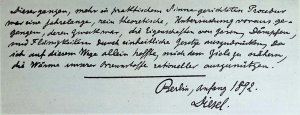 diesen ganzen, mehr in praktischem Sinne gerichteten Procedur
war eine jahrelange, rein theoretische, Untersuchung voraus ge-
gangen, deren Zweck war, die Eigenschaften von Gasen, Dämpfen
und Flüssigkeiten durch einheitliche Gesetze auszudrücken, da
ich auf diesem Wege allein hoffte, mich dem Ziele zu nähern,
die Wärme unserer Brennstoffe rationeller auszunützen.
Berlin, Anfang 1892.
Diesel.